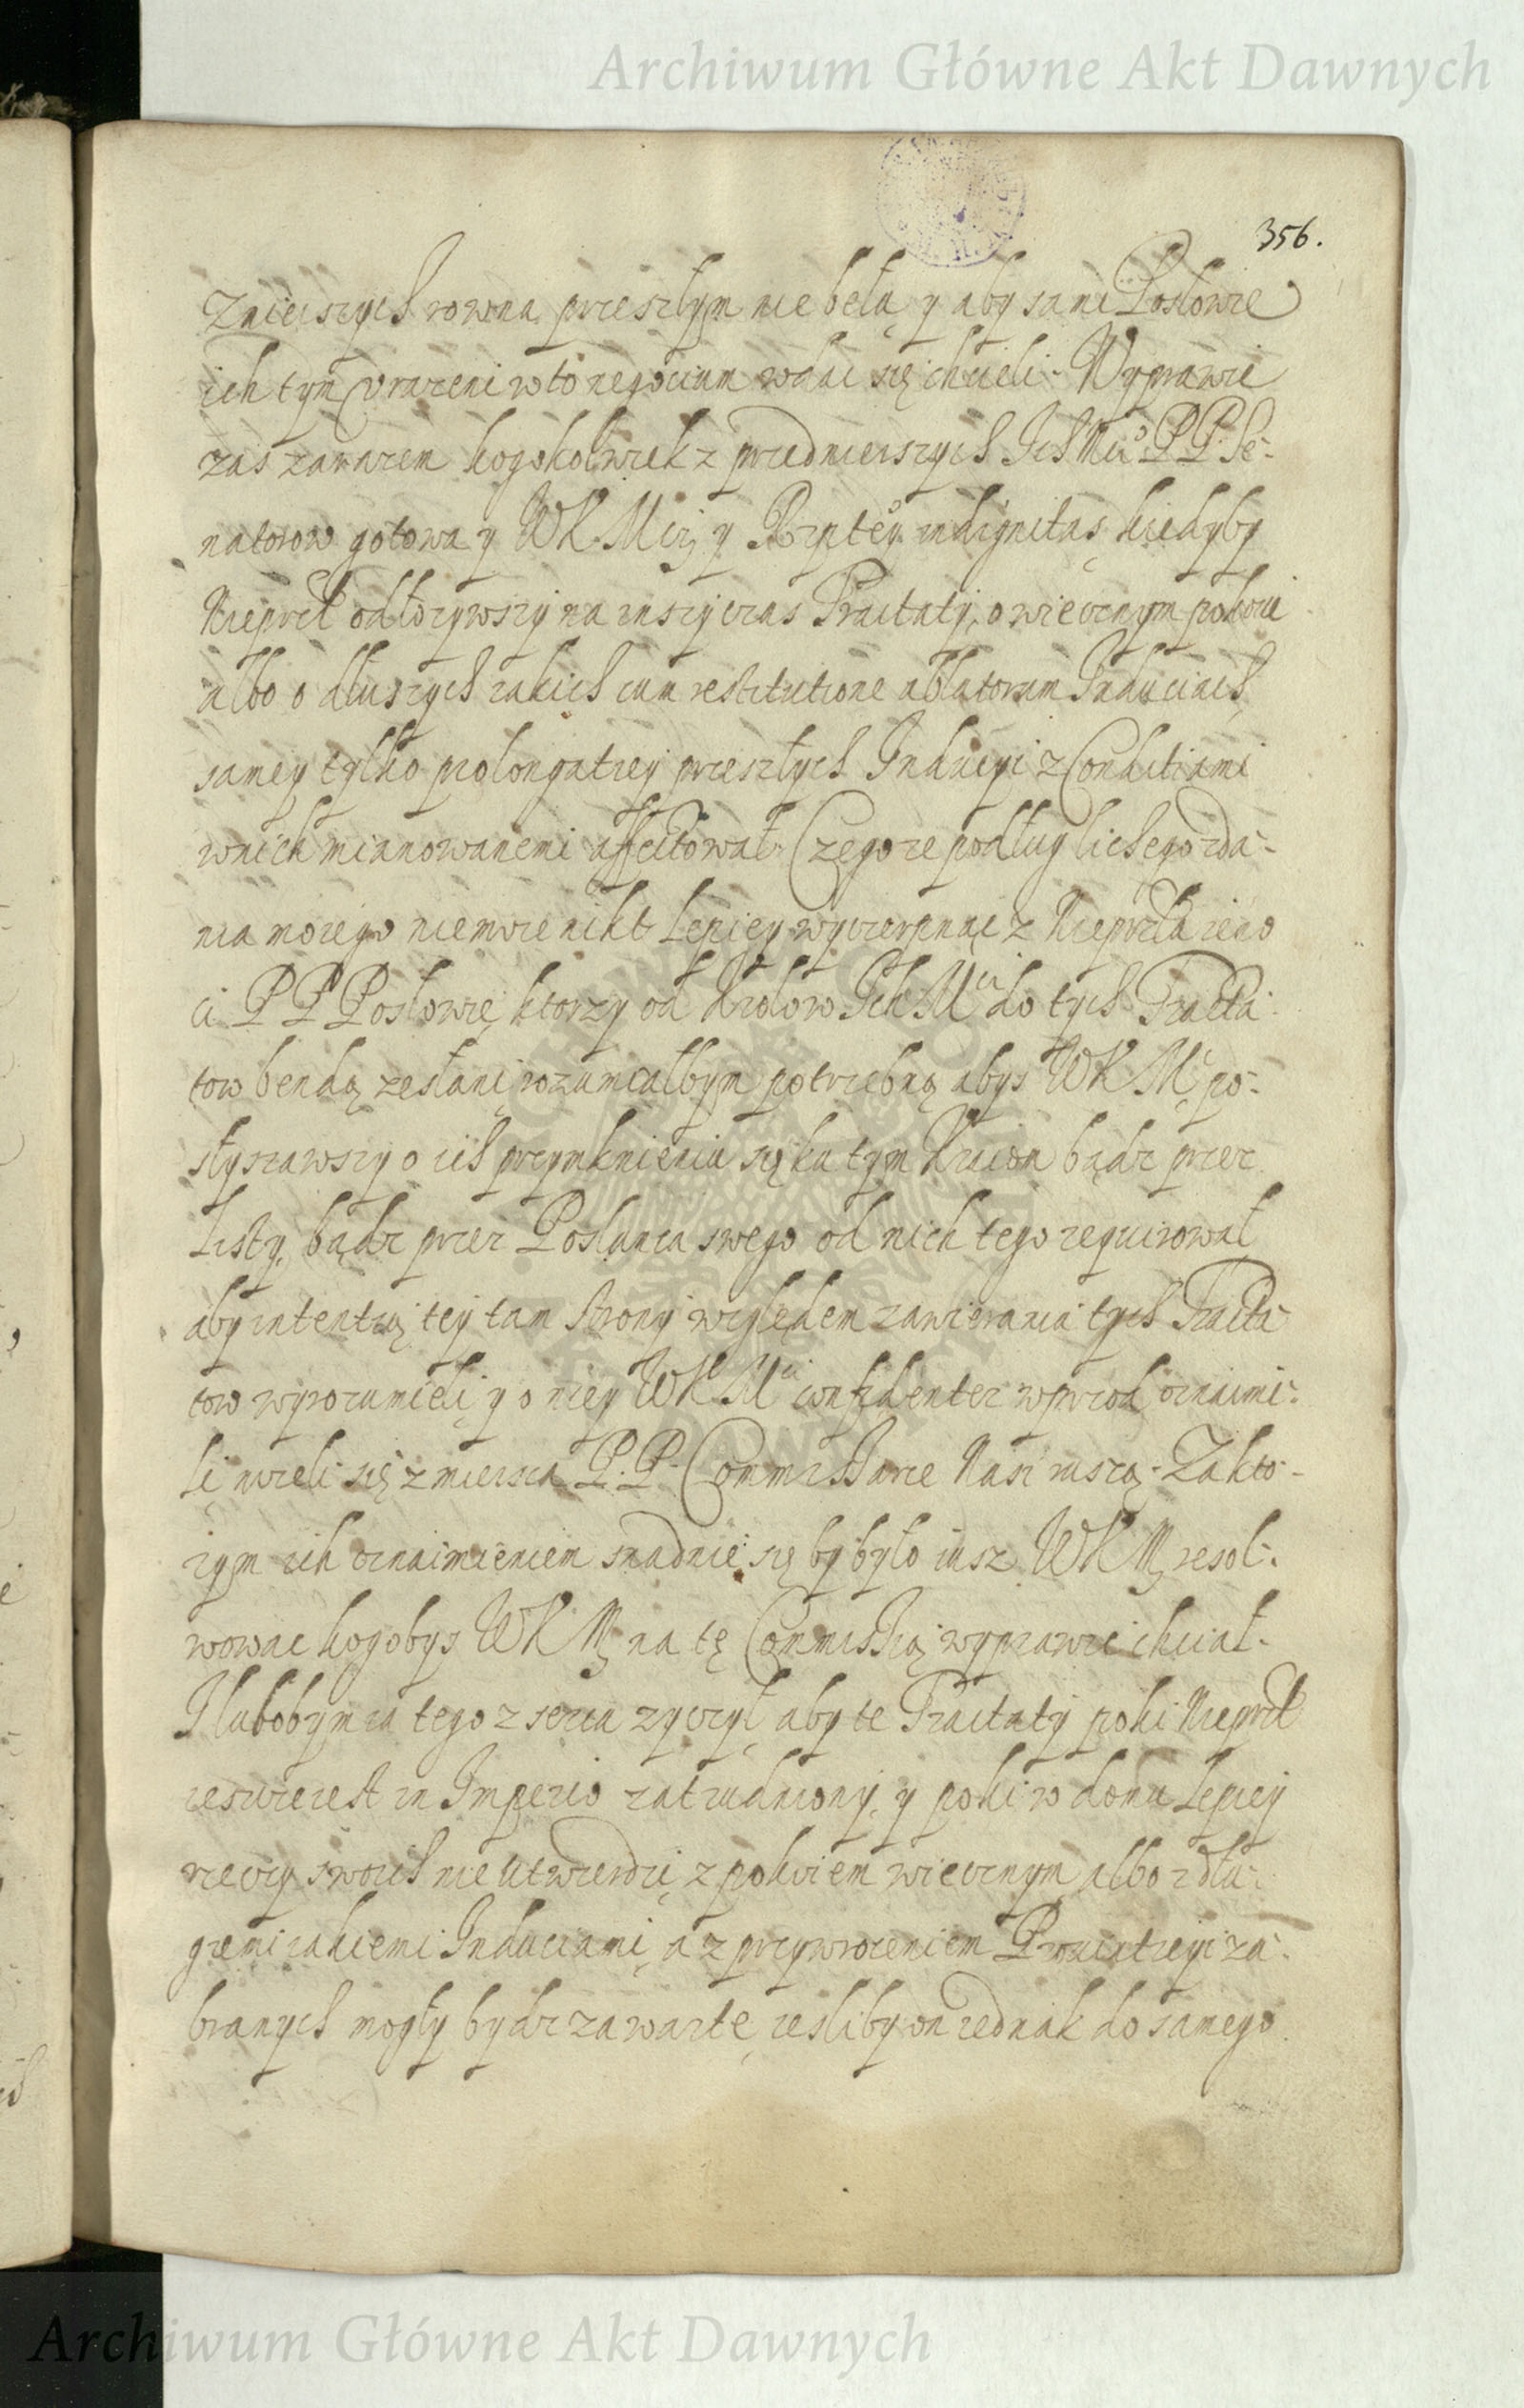 Archiwum Główne Akt Dawnych
356.
znieiszych rowna przeszłym nie beła, y aby sami Posłowie
ich tym urazeni w to negocium wdac się chcieli. Wyprawic
zas zarazem kogokolwiek z przednieiszych Ich Mci PP. Se-
natorow gotowa y WKMci, y Rzptey indignitas, kiedyby
Nieprzł odłozywszy na inszy czas Tractaty, o wiecznym pokoiu
albo o dłuszych iakich cum restitutione ablatorum Induciach,
samey tylko prolongatiey przeszłych Inducyi z Conditiami
w nich mianowanemi affectował. Czego ze podług lichego zda-
nia moiego niemoze nikt lepiey wyczerpnąc z Nieprzła ieno
ci PP Posłowie, ktorzy od Krolow Ich Mci do tych Tracta-
tow bendą zesłani, rozumiałbym potrzebną abys WKMc po-
słyszawszy o ich przymknieniu się ku tym kraiom bądz przez
Listy, bądz przez Posłanca swego od nich tego requirował,
aby intentią tey tam strony względem zawierania tych Tracta-
tow wyrozumieli, y o niey WKMci confidenter wprzod oznaimi-
li nizeli się z mieisca P.P. Commissarze Nasi ruszą. Za kto-
rym ich oznaimieniem snadnie się by było iusz WKM resol-
wowac kogobys WKM na tę Commissią wyprawic chciał.
I lubobym ia tego z serca zyczył, aby te Tractaty poki Nieprzł
ieszcze iest in Imperio zatrudniony, y poki w domu lepiey
rzeczy swoich nie utwierdzi, z pokoiem wiecznym albo z dłu-
gzemi iakiemi Induciami, a z przywroceniem Prouintiyi za-
branych mogły bydz zawarte, iesliby on iednak do samego
Archiwum Główne Akt Dawnych